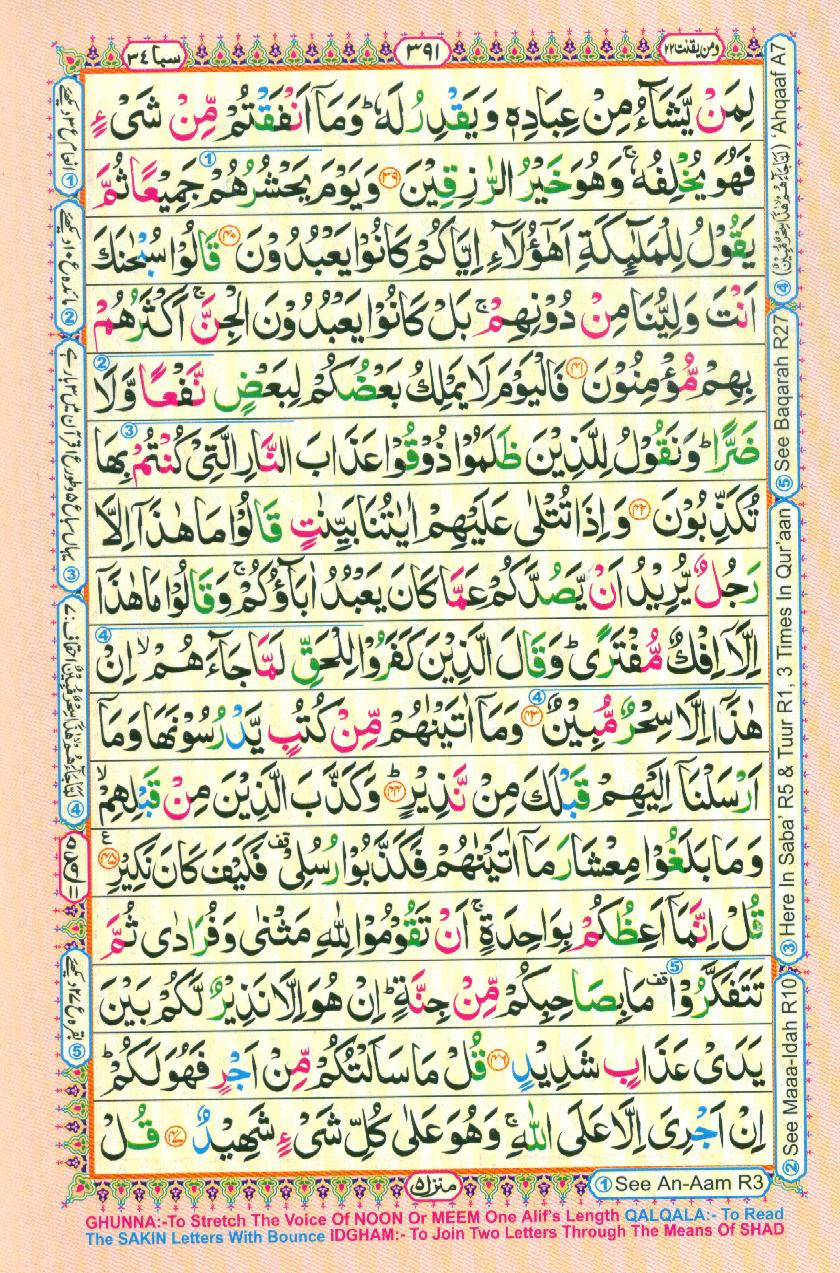 ومن یقنت ۲۲
۳۹۱
سبا ۳۴
لِمَنْ يَّشَآءُ مِنْ عِبَادِهٖ وَيَقْدِرُ لَهٗ ؕ وَمَاۤ اَنْفَقْتُمْ مِّنْ شَىْءٍ
فَهُوَ يُخْلِفُهٗ ۚ وَهُوَ خَيْرُ الرّٰزِقِيْنَ ۝۳۹ وَيَوْمَ يَحْشُرُهُمْ جَمِيْعًا ثُمَّ
يَقُوْلُ لِلْمَلٰٓئِكَةِ اَهٰٓؤُلَآءِ اِيَّاكُمْ كَانُوْا يَعْبُدُوْنَ ۝۴۰ قَالُوْا سُبْحٰنَكَ
اَنْتَ وَلِيُّنَا مِنْ دُوْنِهِمْ ۚ بَلْ كَانُوْا يَعْبُدُوْنَ الْجِنَّ ۚ اَكْثَرُهُمْ
بِهِمْ مُّؤْمِنُوْنَ ۝۴۱ فَالْيَوْمَ لَا يَمْلِكُ بَعْضُكُمْ لِبَعْضٍ نَّفْعًا وَّلَا
ضَرًّا ؕ وَنَقُوْلُ لِلَّذِيْنَ ظَلَمُوْا ذُوْقُوْا عَذَابَ النَّارِ الَّتِىْ كُنْتُمْ بِهَا
تُكَذِّبُوْنَ ۝۴۲ وَاِذَا تُتْلٰى عَلَيْهِمْ اٰيٰتُنَا بَيِّنٰتٍ قَالُوْا مَا هٰذَاۤ اِلَّا
رَجُلٌ يُّرِيْدُ اَنْ يَّصُدَّكُمْ عَمَّا كَانَ يَعْبُدُ اٰبَآؤُكُمْ ۚ وَقَالُوْا مَا هٰذَاۤ
اِلَّاۤ اِفْكٌ مُّفْتَرًى ؕ وَقَالَ الَّذِيْنَ كَفَرُوْا لِلْحَقِّ لَمَّا جَآءَهُمْ ۙ اِنْ
هٰذَاۤ اِلَّا سِحْرٌ مُّبِيْنٌ ۝۴۳ وَمَاۤ اٰتَيْنٰهُمْ مِّنْ كُتُبٍ يَّدْرُسُوْنَهَا وَمَاۤ
اَرْسَلْنَاۤ اِلَيْهِمْ قَبْلَكَ مِنْ نَّذِيْرٍ ؕ ۝۴۴ وَكَذَّبَ الَّذِيْنَ مِنْ قَبْلِهِمْ ۙ
وَمَا بَلَغُوْا مِعْشَارَ مَاۤ اٰتَيْنٰهُمْ فَكَذَّبُوْا رُسُلِىْ قف فَكَيْفَ كَانَ نَكِيْرِ ۝۴۵
قُلْ اِنَّمَاۤ اَعِظُكُمْ بِوَاحِدَةٍ ۚ اَنْ تَقُوْمُوْا لِلّٰهِ مَثْنٰى وَفُرَادٰى ثُمَّ
تَتَفَكَّرُوْا قف مَا بِصَاحِبِكُمْ مِّنْ جِنَّةٍ ؕ اِنْ هُوَ اِلَّا نَذِيْرٌ لَّكُمْ بَيْنَ
يَدَىْ عَذَابٍ شَدِيْدٍ ۝۴۶ قُلْ مَا سَاَلْتُكُمْ مِّنْ اَجْرٍ فَهُوَ لَكُمْ ؕ
اِنْ اَجْرِىَ اِلَّا عَلَى اللّٰهِ ۚ وَهُوَ عَلٰى كُلِّ شَىْءٍ شَهِيْدٌ ۝۴۷ قُلْ
④ 'Ahqaaf A7
⑤ See Baqarah R27
③ Here In Saba' R5 & Tuur R1, 3 Times In Qur'aan
② See Maaa-Idah R10
① See An-Aam R3
منزل ۵
GHUNNA:-To Stretch The Voice Of NOON Or MEEM One Alif's Length QALQALA:- To Read
The SAKIN Letters With Bounce IDGHAM:- To Join Two Letters Through The Means Of SHAD